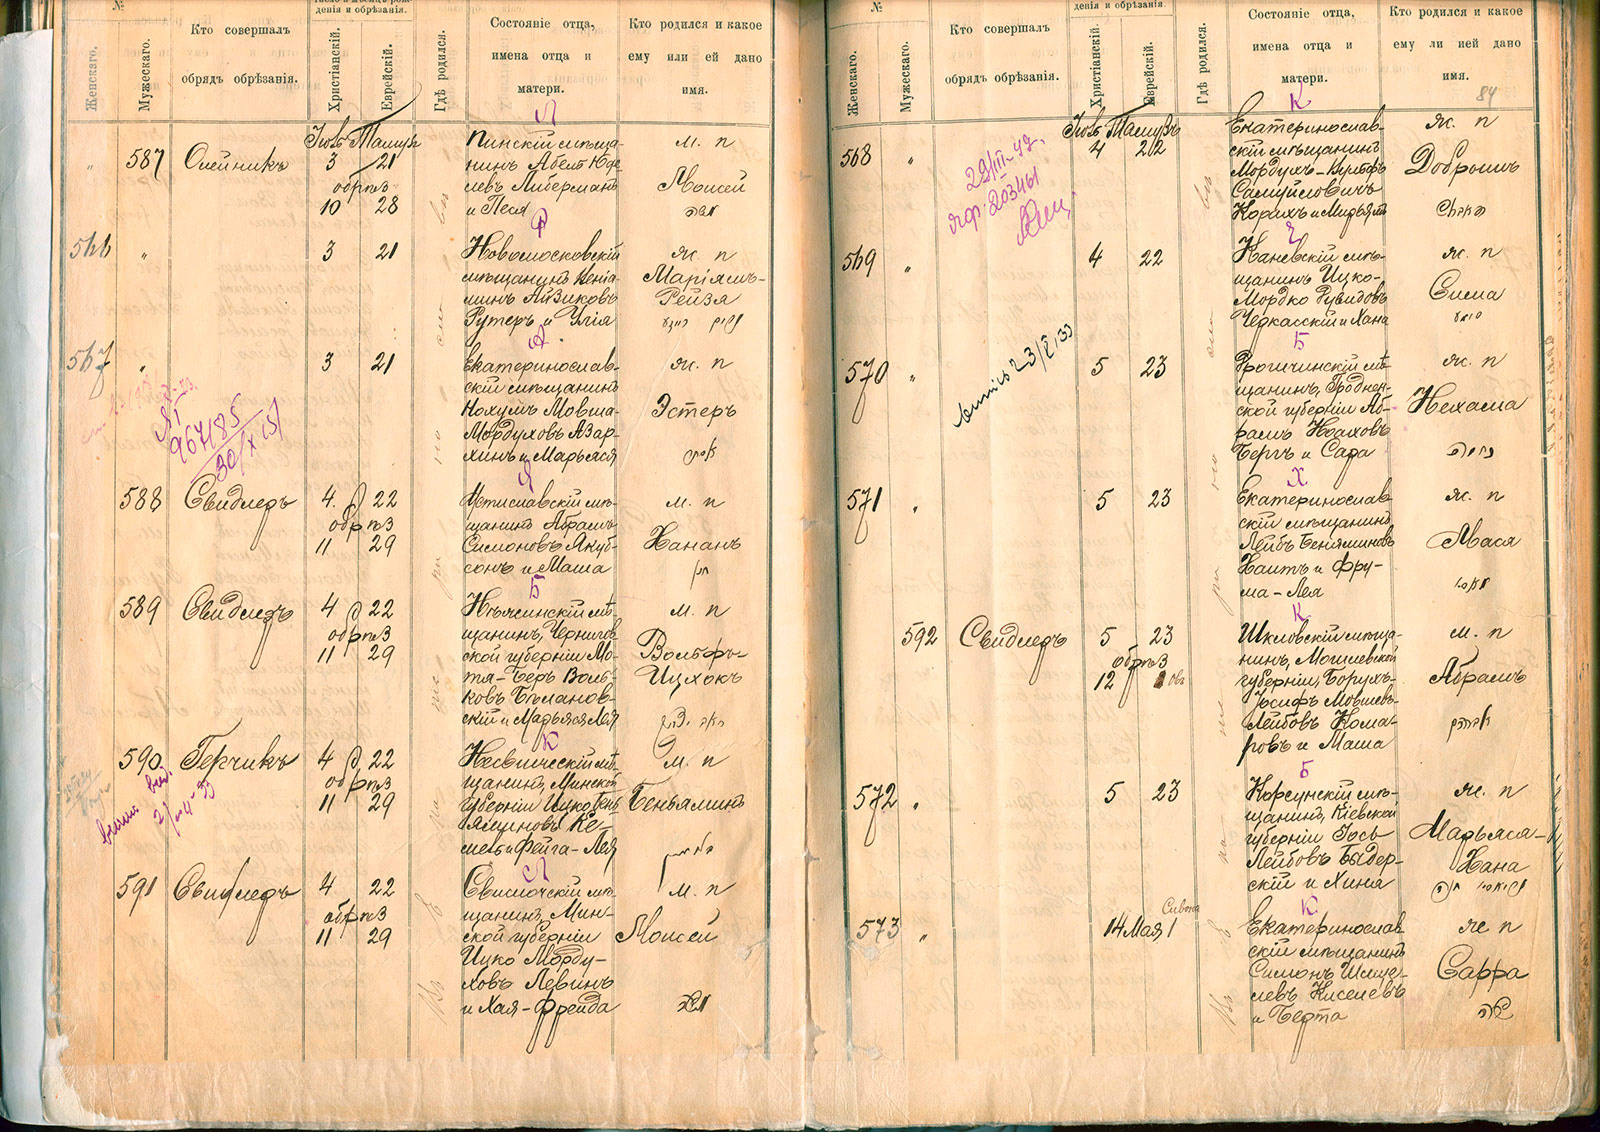 №
Женскаго.
Мужескаго.
Кто совершалъ
обрядъ обрѣзанія.
Число и мѣсяцъ рож-
денія и обрѣзанія.
Христіанскій.
Еврейскій.
Гдѣ родился.
Состояніе отца,
имена отца и
матери.
Кто родился и какое
ему или ей дано
имя.
Л
587
Олейникъ
Іюль Тамузъ
3 21
обрѣз
10 28
Пинскій мѣща-
нинъ Абель Юде-
левъ Либерманъ
и Песя
м. п
Моисей
משה
Р
566
"
3 21
Новомосковскій
мѣщанинъ Беніа-
минъ Айзиковъ
Рутеръ и Улія
ж. п
Маріямъ-
Рейзя
А
567
"
3 21
Екатеринослав-
скій мѣщанинъ
Нохумъ Мовша-
Мордуховъ Азар-
хинъ и Марьяся
ж. п
Эстеръ
אסתר
967185
30/X 151
Я
588
Свидлеръ
4 22
обрѣз
11 29
Мстиславскій мѣ-
щанинъ Абрамъ
Симоновъ Якуб-
сонъ и Маша
м. п
Хананъ
חנן
Б
589
Свидлеръ
4 22
обрѣз
11 29
Нѣжинскій мѣ-
щанинъ, Чернигов-
ской губерніи Мо-
тя-Беръ Воль-
ковъ Бѣланов-
скій и Марьяся Лея
м. п
Вольфъ-
Ицхокъ
К
590
Герчикъ
4 22
обрѣз
11 29
Несвижескій мѣ-
щанинъ, Минской
губерніи Ицко Бень-
яминовъ Ке-
мель и Фейга-Лея
м. п
Беньяминъ
Л
591
Свидлеръ
4 22
обрѣз
11 29
Свислочскій мѣ-
щанинъ, Мин-
ской губерніи
Ицко Морду-
ховъ Левинъ
и Хая-Фрейда
м. п
Моисей
משה
№
Женскаго.
Мужескаго.
Кто совершалъ
обрядъ обрѣзанія.
денія и обрѣзанія.
Христіанскій.
Еврейскій.
Гдѣ родился.
Состояніе отца,
имена отца и
матери.
Кто родился и какое
ему ли ией дано
имя.
84
К
568
"
29/III-47.
203461
Іюль Тамузъ
4 22
Екатеринослав-
скій мѣщанинъ
Мордухъ-Культеръ
Самуйловичъ
Корихъ и Мирьямъ
ж. п
Добрышъ
Ч
569
"
4 22
Каневскій мѣ-
щанинъ Ицко-
Мордко Рувидовъ
Черкасскій и Хана
ж. п
Сима
סימא
Б
570
"
23/V, 33
5 23
щанинъ, Гроднен-
ской губерніи Аб-
рамъ Ноаховъ
Бергъ и Сара
ж. п
Нехама
נחמה
Х
571
"
5 23
Екатеринослав
скій мѣщанинъ
Лейбъ Беняминовъ
Хаитъ и Фру-
ма-Лея
ж. п
Мася
מאסי
К
592
Свидлеръ
5 23
обрѣз
12
Шкловскій мѣща-
нинъ, Могилевской
губерніи, Борухъ-
Іосифъ Мовшевъ-
Лейбовъ Кома-
ровъ и Маша
м. п
Абрамъ
אברהם
Б
572
"
5 23
Корсунскій мѣ-
щанинъ, Кіевской
губерніи Іось
Лейбовъ Быдер-
скій и Хиня
ж. п
Марьяся-
Хана
К
573
"
14 Мая 1
Сивона
Екатеринослав
скій мѣщанинъ
Симонъ Шмуе-
левъ Киселевъ
и Берта
ж п
Сарра
שרה